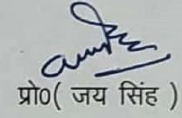 प्रो०( जय सिंह )